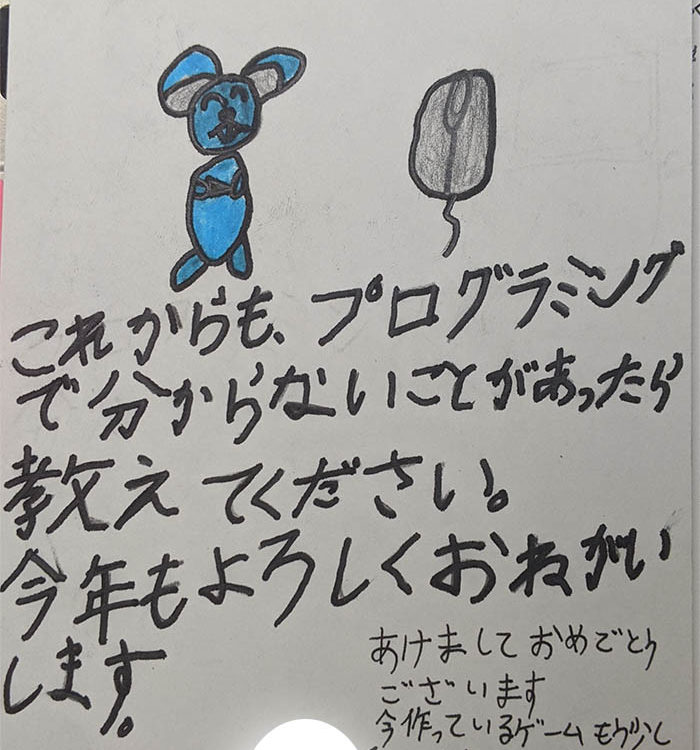 これからも、プログラミング
で分からないことがあったら
教えてください。
今年もよろしくおねがい
します。
あけましておめでとう
ございます
今作っているゲームもう少し